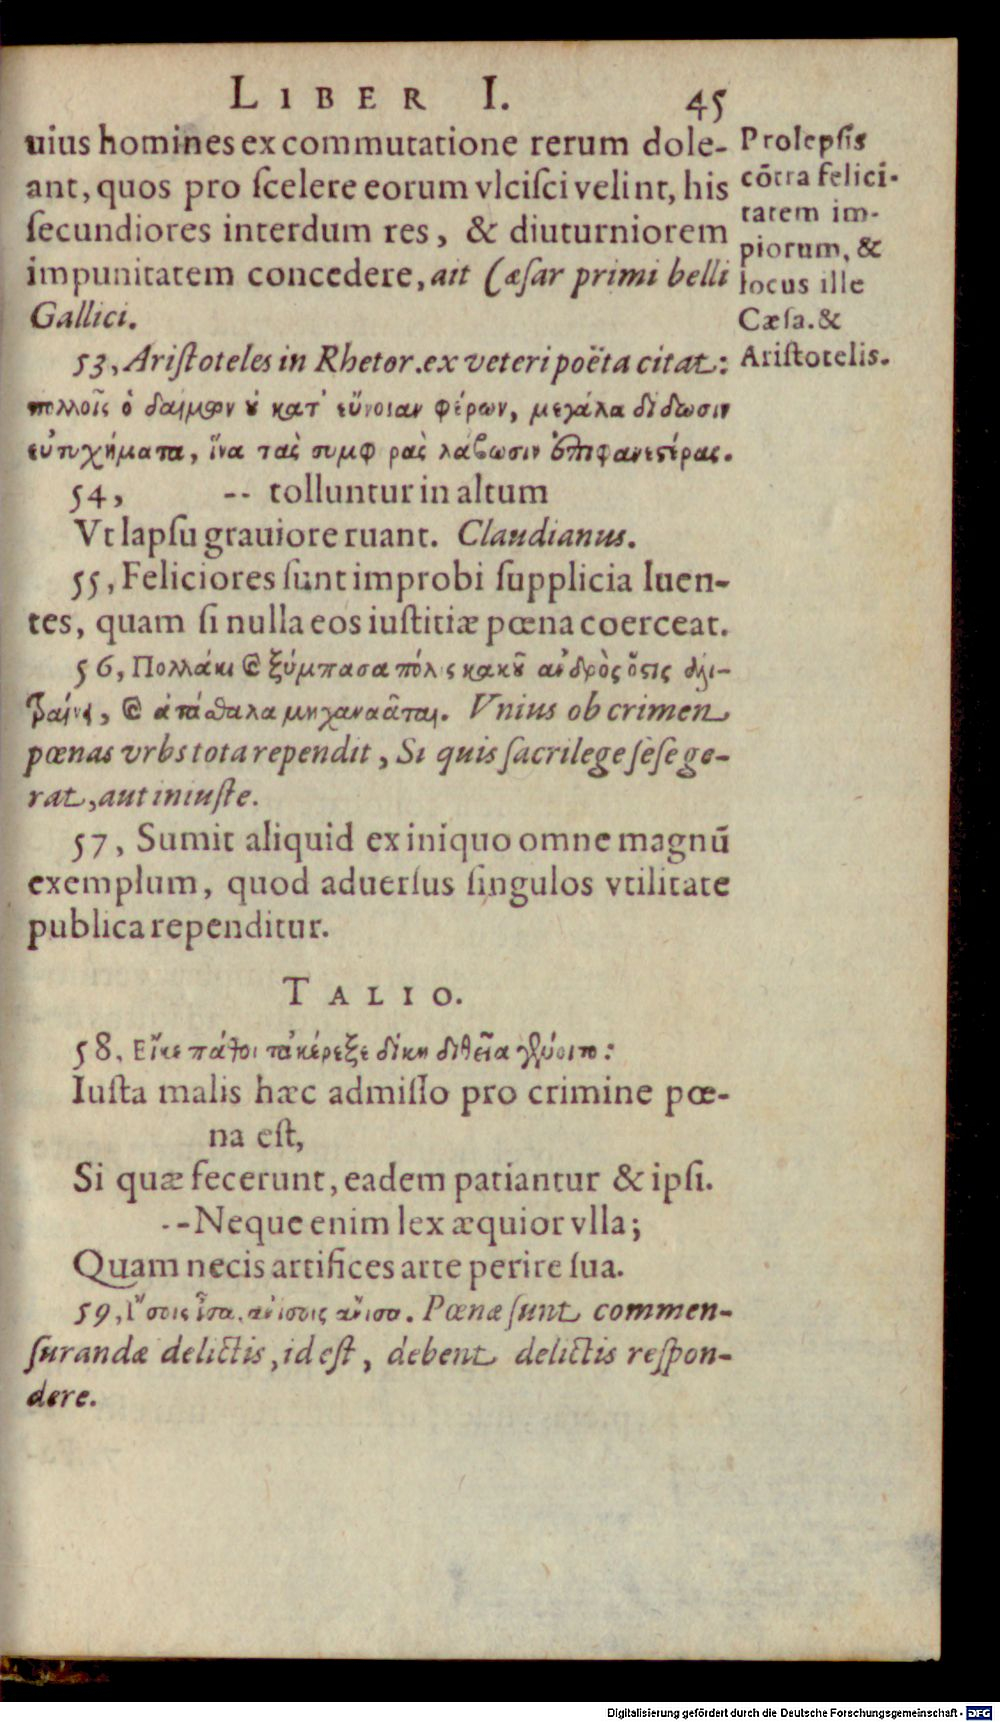 LIBER I. 45
uius homines ex commutatione rerum dole-
ant, quos pro scelere eorum vlcisci velint, his
secundiores interdum res, & diuturniorem
impunitatem concedere, ait Cæsar primi belli
Gallici.
Prolepsis
cōtra felici-
tatem im-
piorum, &
locus ille
Cæsa. &
Aristotelis.
53, Aristoteles in Rhetor. ex veteri poëta citat:
πολλοῖς ὁ δαίμων ȣ κατ' εὔνοιαν φέρων, μεγάλα δίδωσιν
εὐτυχήματα, ἵνα τὰς συμφ ρὰς λάβωσιν ἐπιφανεστέρας.
54, -- tolluntur in altum
Vt lapsu grauiore ruant. Claudianus.
55, Feliciores sunt improbi supplicia luen-
tes, quam si nulla eos iustitiæ pœna coerceat.
56, Πολλάκι ϗ ξύμπασα πόλις κακȣ ἀνδρὸς ὅστις
ϗ ἀτάσθαλα μηχανάαται. Vnius ob crimen
pœnas vrbs tota rependit, Si quis sacrilege sese ge-
rat, aut iniuste.
57, Sumit aliquid ex iniquo omne magnū
exemplum, quod aduersus singulos vtilitate
publica rependitur.
TALIO.
58, Εἴκε πάθοι τάκέρεξε δίκη διθεῖα γένοιτο:
Iusta malis hæc admisso pro crimine pœ-
na est,
Si quæ fecerunt, eadem patiantur & ipsi.
--Neque enim lex æquior vlla;
Quam necis artifices arte perire sua.
59, Ἴσοις ἶσα, ἀνίσοις ἄνισα. Pœnæ sunt commen-
surandæ delictis, id est, debent delictis respon-
dere.
Digitalisierung gefördert durch die Deutsche Forschungsgemeinschaft - DFG